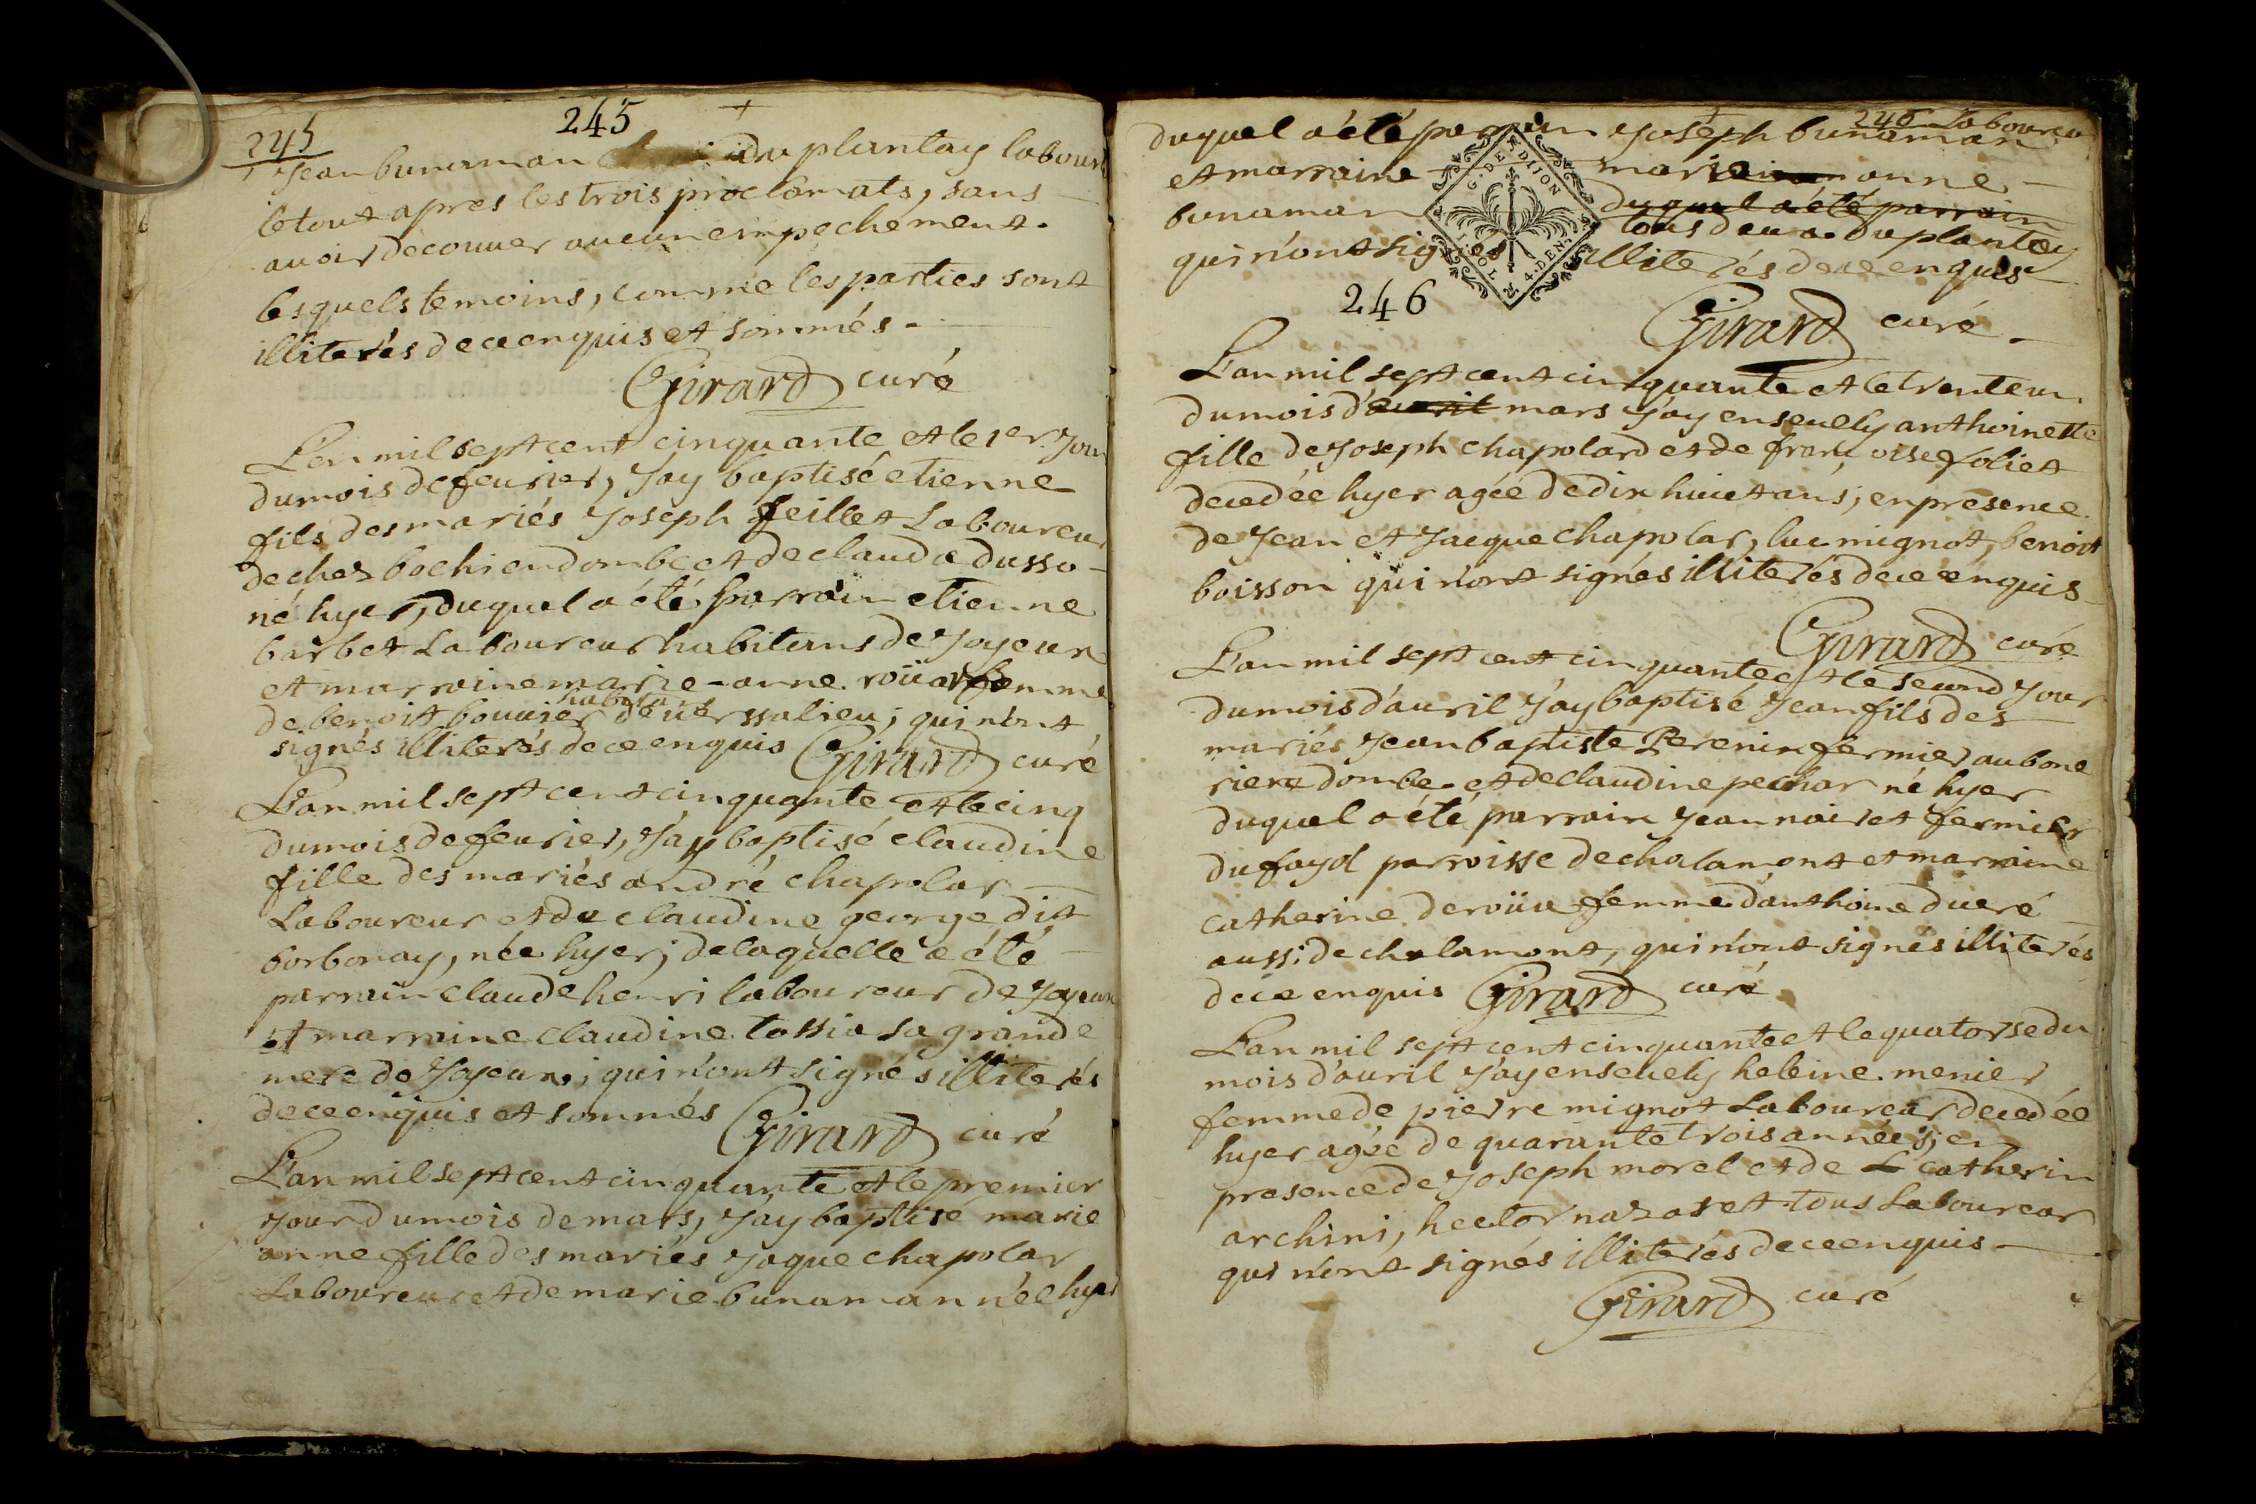 245
245
Jean bunaman du plantay labour
le tout apres les trois proclamats, sans
auoir decouuer aucun empechement.
lesquels temoins, comme les parties sont
illiterés de ce enquis et sommés.
Girard curé
L'an mil sept cent cinquante et le 1er Jour
du mois de feurier, J'ay baptisé etienne
fils des mariés Joseph feillet Laboureur
de chez bochi en dombe et de clauda dusso
né hyer, duquel a été parrain etienne
barbet Laboureur habitans de Joyeux
et marraine marie-anne roüer femme
habitans
de benoit bouuier de uerssalieu; qui n'ont
signés illiterés de ce enquis Girard curé
L'an mil sept cent cinquante et le cinq
du mois de feurier, J'ay baptisé claudine
fille des mariés andré chapolar
Laboureur et de claudine george dit
borbonay, née hyer; de laquelle a été
parrain claude henri laboureur de Joyeux
et marraine claudine tossia sa grande
mere de Joyeux; qui n'ont signés illiterés
de ce enquis et sommés Girard curé
L'an mil sept cent cinquante et le premier
Jour du mois de mars, J'ay baptisé marie
anne fille des mariés Jaque chapolar
Laboureur et de marie bunaman née hyer
246 Laboureur
duquel a été parrain Joseph bunaman
et marraine marie anne
bunaman duquel a été parrain
tous deux du plantay
qui n'ont signés illiterés de ce enquis
G. DE DIJON
4. DEN.
246
Girard curé
L'an mil sept cent cinquante et le trente un
du mois d'auril mars J'ay enseuely anthoinette
fille de Joseph chapolard et de françoise foliet
decedée hyer agée de dix huict ans; en presence
de Jean et Jacque chapolar, luc mignot, benoit
boisson qui n'ont signés illiterés de ce enquis
Girard curé
L'an mil sept cent cinquante et le second Jour
du mois d'auril J'ay baptisé Jean fils des
mariés Jean baptiste Perenin fermier au bone
rien dombe et de claudine pechar né hyer
duquel a été parrain Jean nairet fermier
du fayol parroisse de chalamont et marraine
catherine deroüe femme d'anthoine dueré
aussi de chalamont, qui n'ont signés illiterés
de ce enquis Girard curé
L'an mil sept cent cinquante et le quatorse du
mois d'auril J'ay enseuely heleine menier
femme de pierre mignot Laboureur decedée
hyer agée de quarante trois années; en
presence de Joseph morel et de catherin
archini, hector nazaret tous Laboureur
qui n'ont signés illiterés de ce enquis
Girard curé